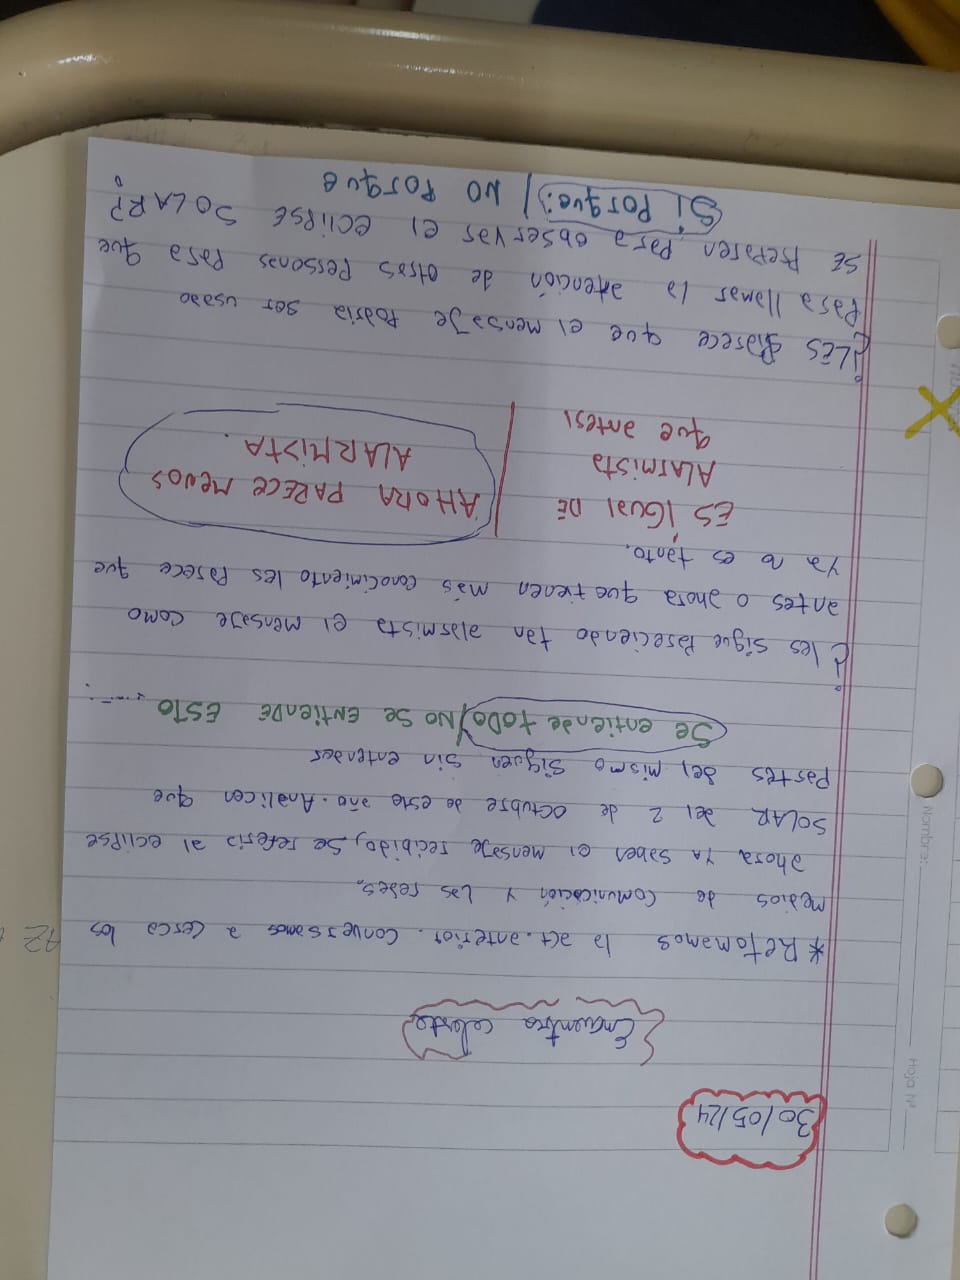 Hoja Nº
Nombre:
30/05/24
Encuentro celeste
* Retomamos la act. anterior. Conversamos a cerca los
medios de comunicación y las redes.
ahora ya saben el mensaje recibido, se referia al eclipse
SOLAR del 2 de octubre de este año. Analicen que
partes del mismo siguen sin entender
Se entiende todo / No se entiende ESTO
¿les sigue pareciendo tan alarmista el mensaje como
antes o ahora que tienen más conocimiento les parece que
ya no es tanto.
ES IGUAL DE
ALARMISTA
que antes
AHORA PARECE MENOS
ALARMISTA.
¿LES parece que el mensaje podria ser usado
para llamar la atención de otras personas para que
SE preparen para observar el eclipse SOLAR?
Sí Porque: / NO Porque